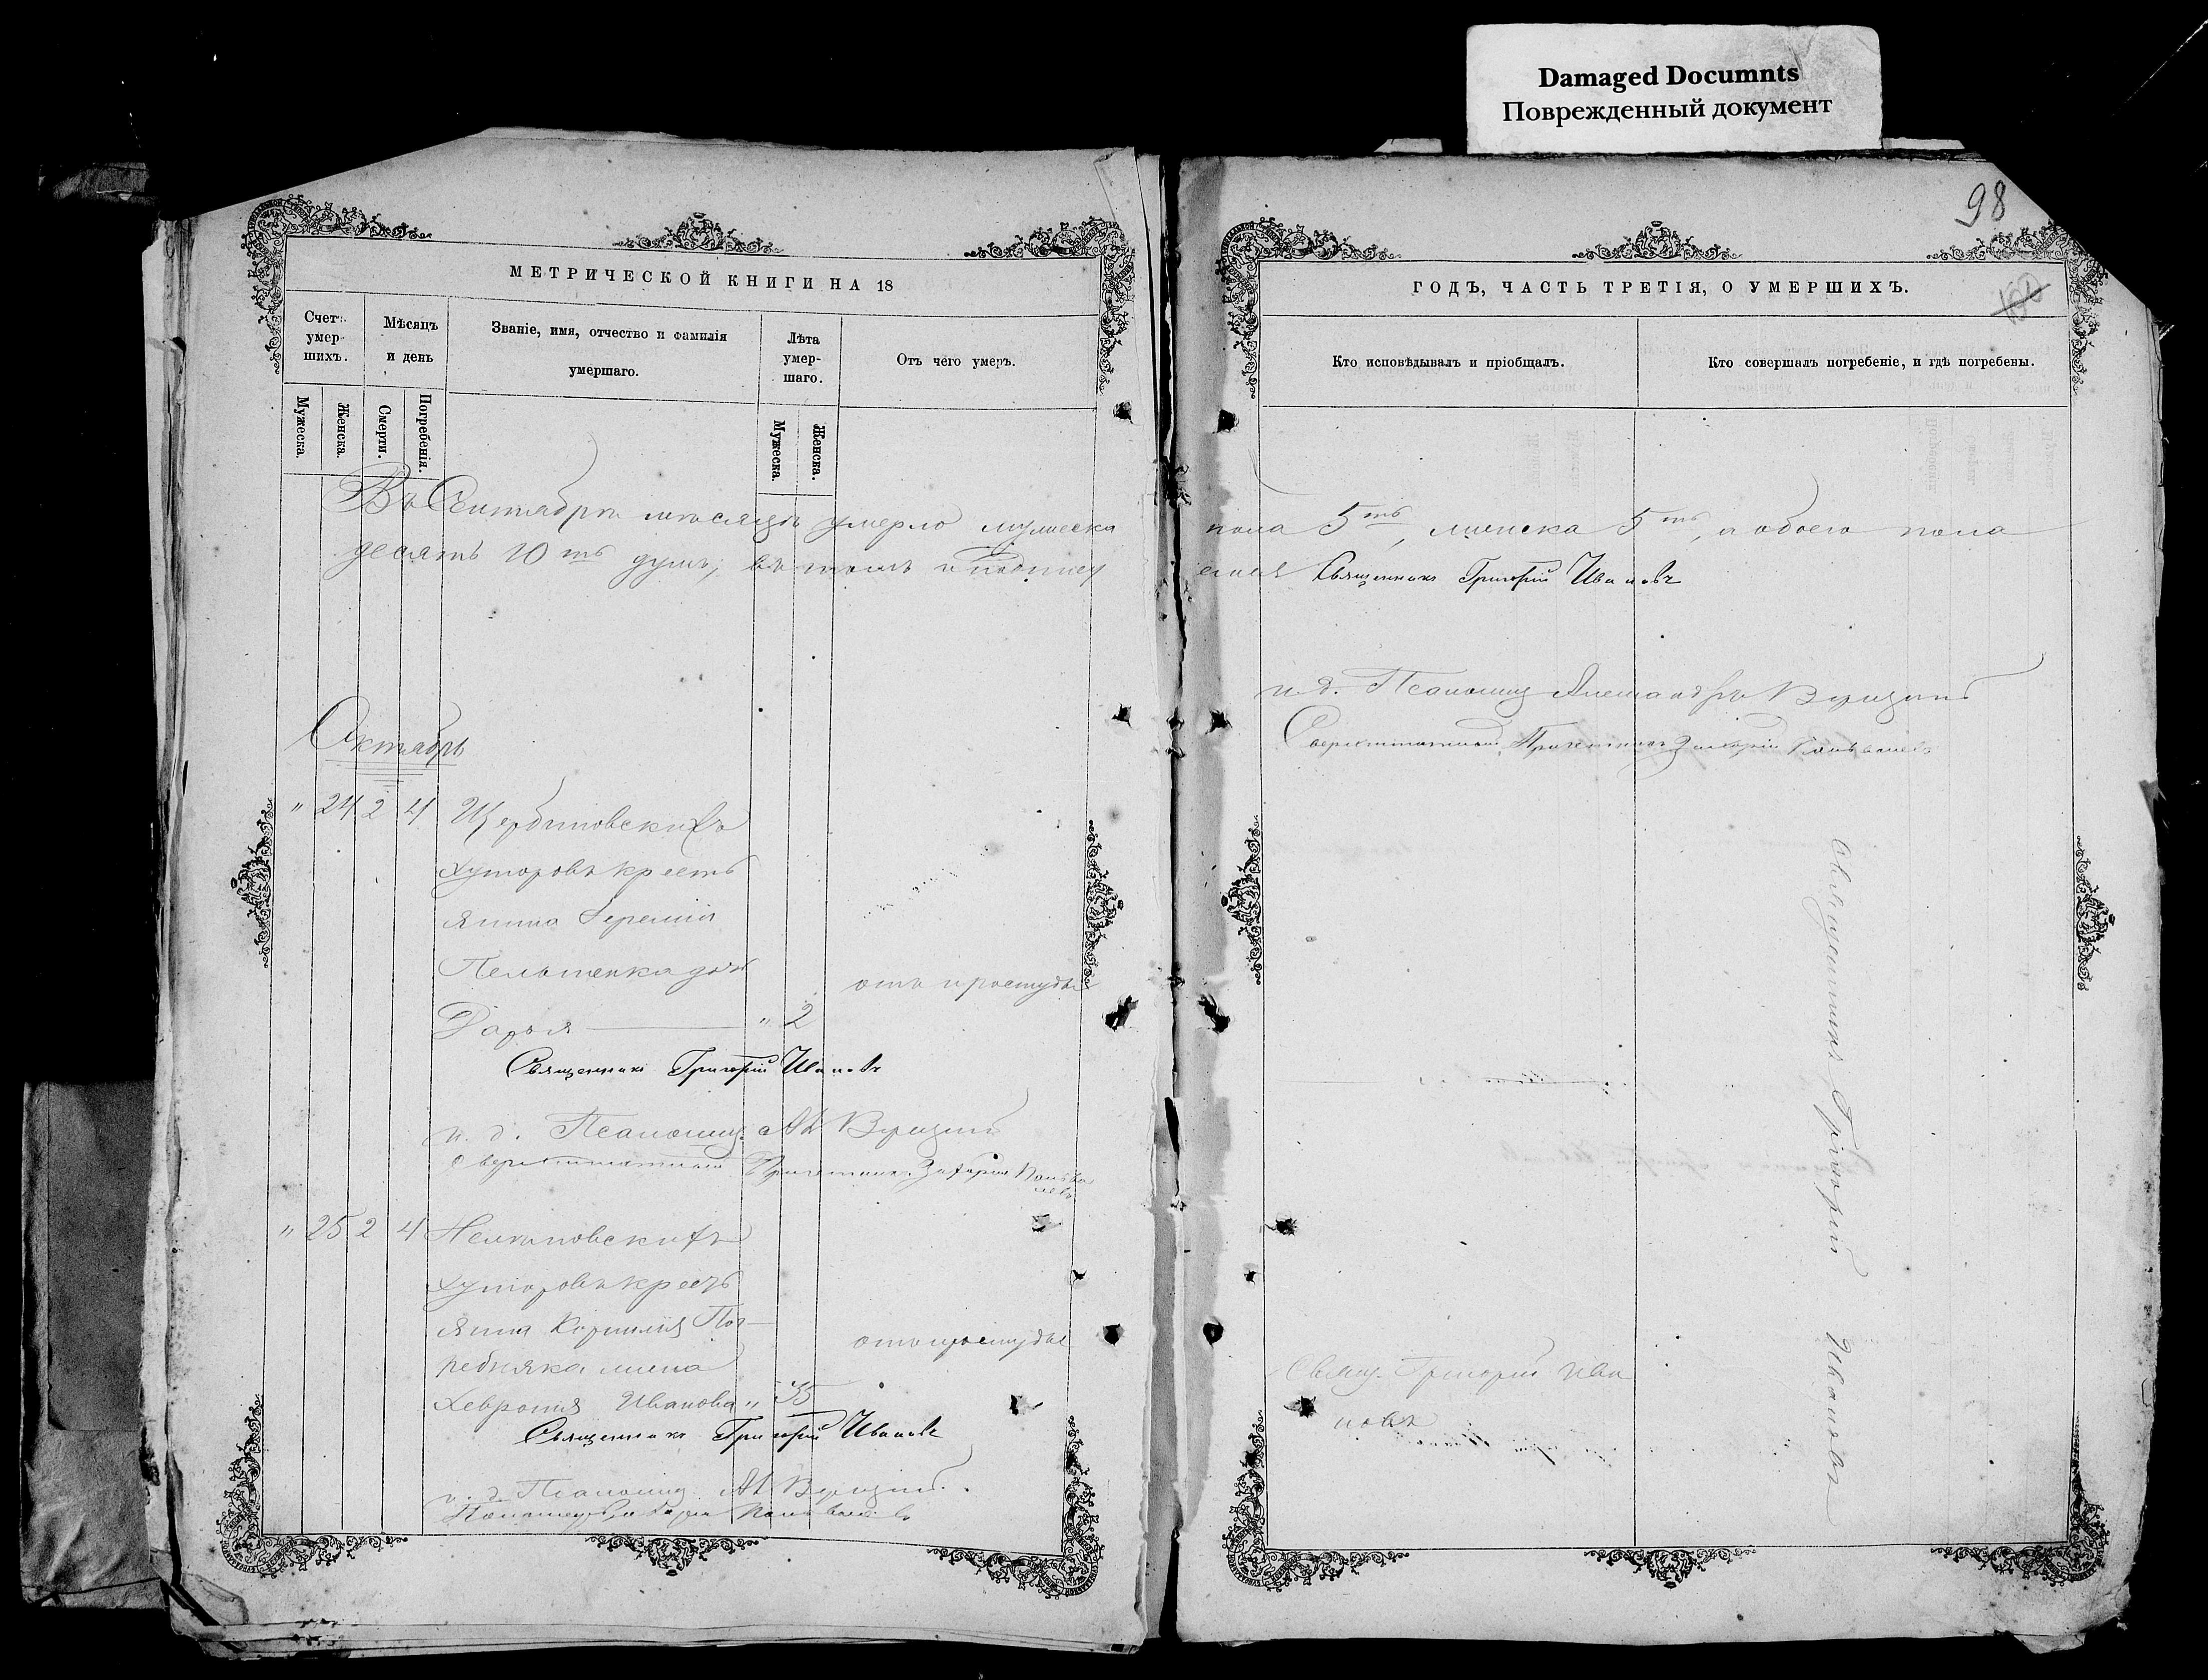 Damaged Documnts
Поврежденный документ
98
100
МЕТРИЧЕСКОЙ КНИГИ НА 18
Счетъ умершихъ.
Мѣсяцъ и день
Званіе, имя, отчество и фамилія умершаго.
Лѣта умершаго.
Отъ чего умеръ.
Мужеска.
Женска.
Смерти.
Погребенія.
Мужеска.
Женска.
Въ Сентябрѣ мѣсяцѣ умерло мужеска
десять 10ть душъ; въ томъ и подпис
Октябрь
" 24 2 4 Щербиновскихъ
хуторовъ кресть
янина Іереміи
дочь
отъ простуды
Дарья — " 2
Священникъ Григорій Ивановъ
и. д. Псаломщ. Ал
Сверхштатный Причетникъ Захарій
" 25 2 4
хуторовъ крест
янина Корнилія Пог
ребняка жена
отъ простуды
Хевронія Иванова " 35
Священникъ Григорій Ивановъ
и. д. Псаломщ. Ал
Захарій
ГОДЪ, ЧАСТЬ ТРЕТІЯ, О УМЕРШИХЪ.
Кто исповѣдывалъ и пріобщалъ.
Кто совершалъ погребеніе, и гдѣ погребены.
пола 5ть, женска 5ть, а обоего пола
емся Священникъ Григорій Ивановъ
и. д. Псаломщ Александръ
Сверхштатный Причетникъ Захарій
Священникъ Григорій Ивановъ
Свящ. Григорій Ива
новъ